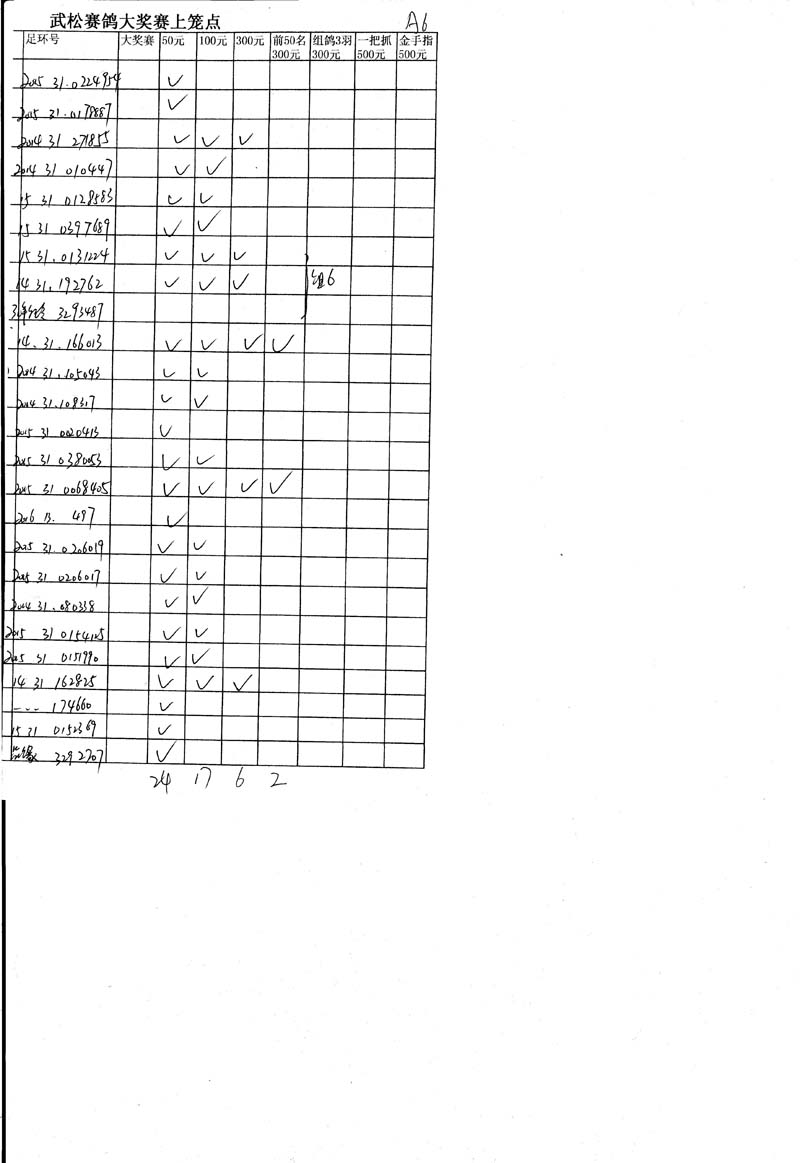 武松赛鸽大奖赛上笼点 A6
足环号 大奖赛 50元 100元 300元 前50名300元 组鸽3羽300元 一把抓500元 金手指500元
2015 31.0224954 ✓
2015 31.0178887 ✓
2014 31 271855 ✓ ✓ ✓
2014 31 010447 ✓ ✓
15 31 0128583 ✓ ✓
15 31 0397689 ✓ ✓
15 31.0131224 ✓ ✓ ✓
14 31.192762 ✓ ✓ ✓ 组6
3293487
14.31.166013 ✓ ✓ ✓ ✓
2014 31.105043 ✓ ✓
2014 31.108317 ✓ ✓
2015 31 0020413 ✓
2015 31 0380053 ✓ ✓
2015 31 0068405 ✓ ✓ ✓ ✓
2016 13. 487 ✓
2015 31.0206019 ✓ ✓
2015 31 0206017 ✓ ✓
2014 31.080338 ✓ ✓
2015 31 0154125 ✓ ✓
2015 31 0151990 ✓ ✓
14 31 162825 ✓ ✓ ✓
--- 174660 ✓
15 31 0152369 ✓
3292707 ✓
24 17 6 2